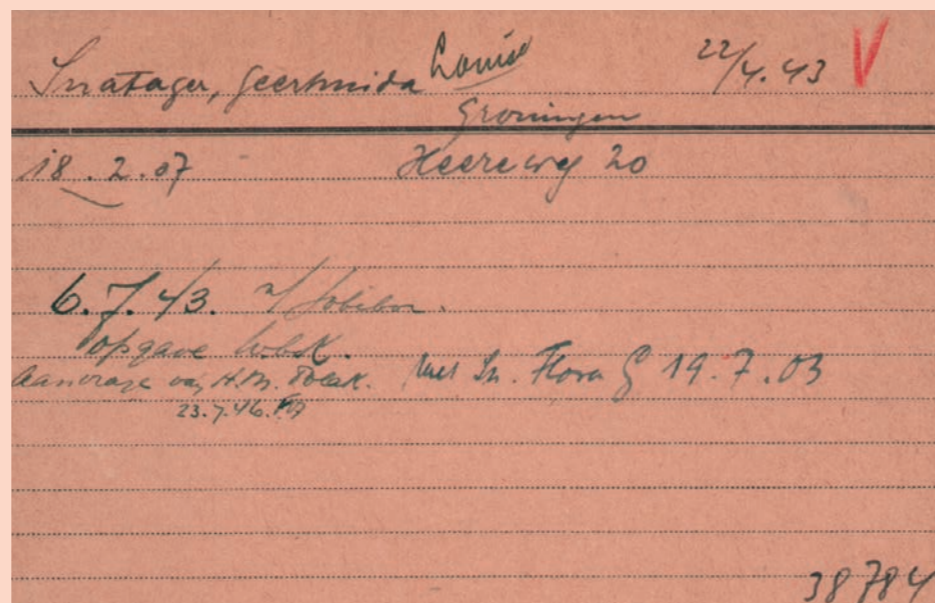 Snatager, Geertruida Louise 22/4.43 V
Groningen
18.2.07 Heereweg 20
6.7.43. n/ Sobibor.
opgave
Aanvrage van H.M. Polak. met Sn. Flora G 19.7.03
23.7.46.
38784